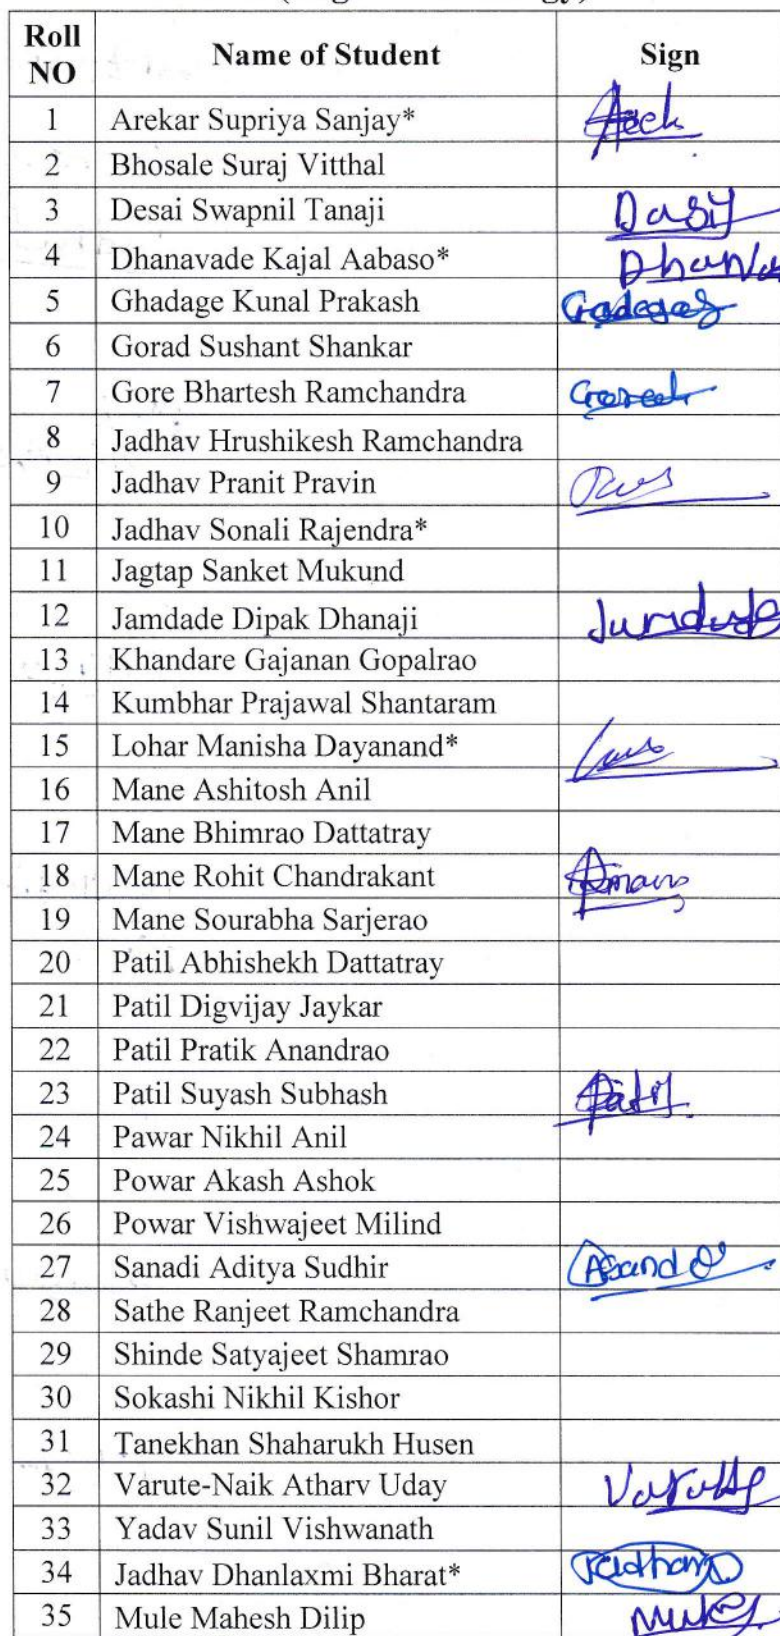 Roll NO Name of Student Sign
1 Arekar Supriya Sanjay*
2 Bhosale Suraj Vitthal
3 Desai Swapnil Tanaji
4 Dhanavade Kajal Aabaso*
5 Ghadage Kunal Prakash
6 Gorad Sushant Shankar
7 Gore Bhartesh Ramchandra
8 Jadhav Hrushikesh Ramchandra
9 Jadhav Pranit Pravin
10 Jadhav Sonali Rajendra*
11 Jagtap Sanket Mukund
12 Jamdade Dipak Dhanaji
13 Khandare Gajanan Gopalrao
14 Kumbhar Prajawal Shantaram
15 Lohar Manisha Dayanand*
16 Mane Ashitosh Anil
17 Mane Bhimrao Dattatray
18 Mane Rohit Chandrakant
19 Mane Sourabha Sarjerao
20 Patil Abhishekh Dattatray
21 Patil Digvijay Jaykar
22 Patil Pratik Anandrao
23 Patil Suyash Subhash Patil
24 Pawar Nikhil Anil
25 Powar Akash Ashok
26 Powar Vishwajeet Milind
27 Sanadi Aditya Sudhir
28 Sathe Ranjeet Ramchandra
29 Shinde Satyajeet Shamrao
30 Sokashi Nikhil Kishor
31 Tanekhan Shaharukh Husen
32 Varute-Naik Atharv Uday
33 Yadav Sunil Vishwanath
34 Jadhav Dhanlaxmi Bharat*
35 Mule Mahesh Dilip